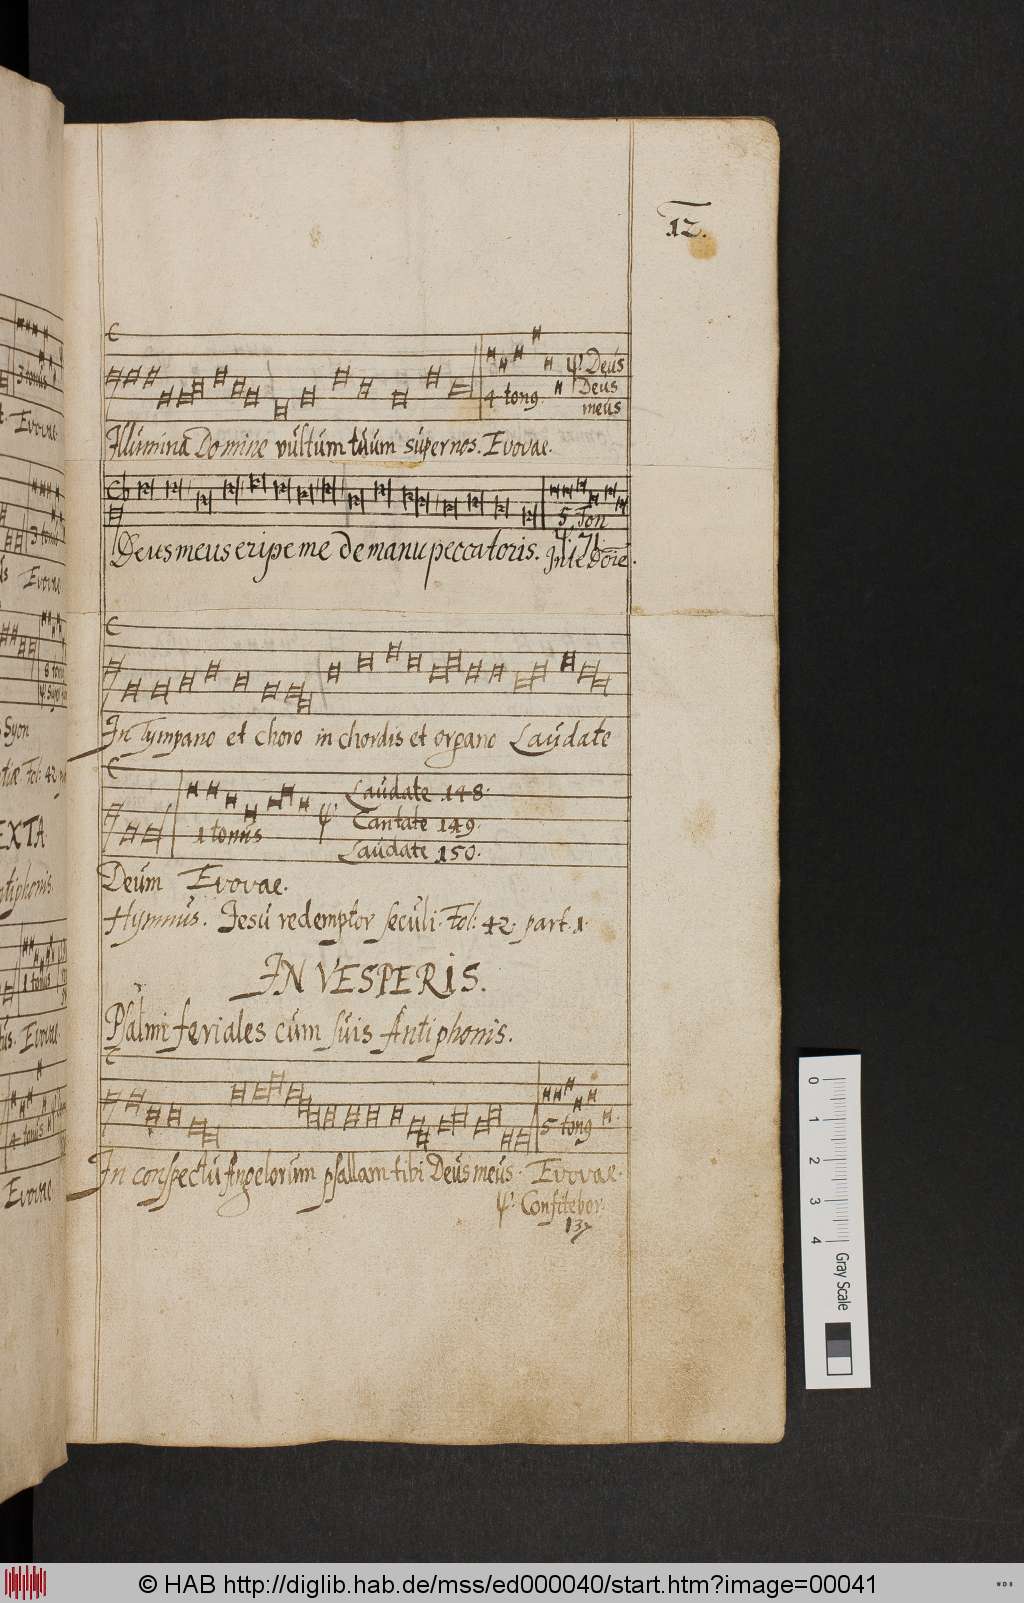 12.
ψ. Deus
Deus
4 tong. meus
Illumina Domine vultum tuum super nos. Evovae.
5. Ton
4. 71.
Deus meus eripe me de manu peccatoris. In te Dōīe.
In Tympano et choro in chordis et organo Laudate
Laudate 148.
1 tonus ψ. Cantate 149.
Laudate 150.
Deum Evovae.
Hymnus. Jesu redemptor seculi. Fol: 42. part. 1.
IN VESPERIS.
Psalmi feriales cum suis Antiphonis.
5 tong
In conspectu Angelorum psallam tibi Deus meus. Evovae.
ψ. Confitebor.
137
3 tonus
Evovae.
3 toni
Evovae
Syon
Fol: 42
EXTA
ntiphonis.
1 tonus
Evovae.
4 tonus
Evovae
0 1 2 3 4
Gray Scale
© HAB http://diglib.hab.de/mss/ed000040/start.htm?image=00041